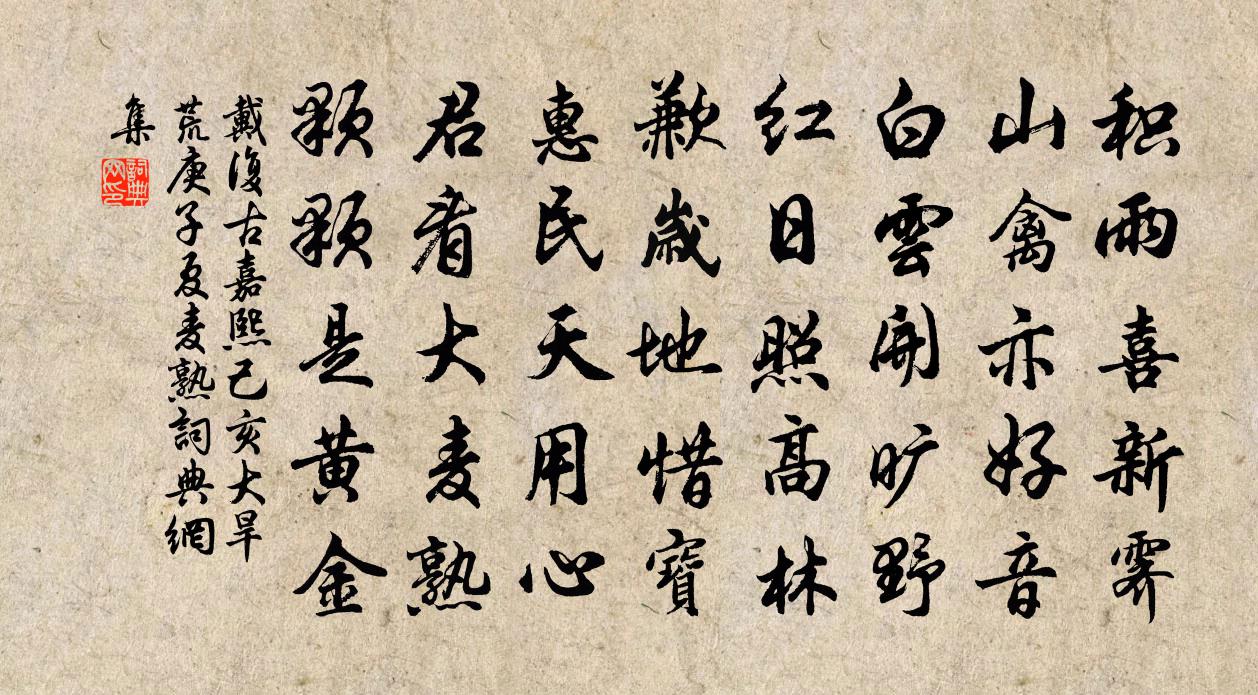 积雨喜新霽
山禽亦好音
白雲開旷野
红日照高林
歉歲地惜寶
惠民天用心
君看大麦熟
顆顆是黄金
戴復古嘉熙己亥大旱
荒庚子夏麦熟詞典網
集
詞典網印